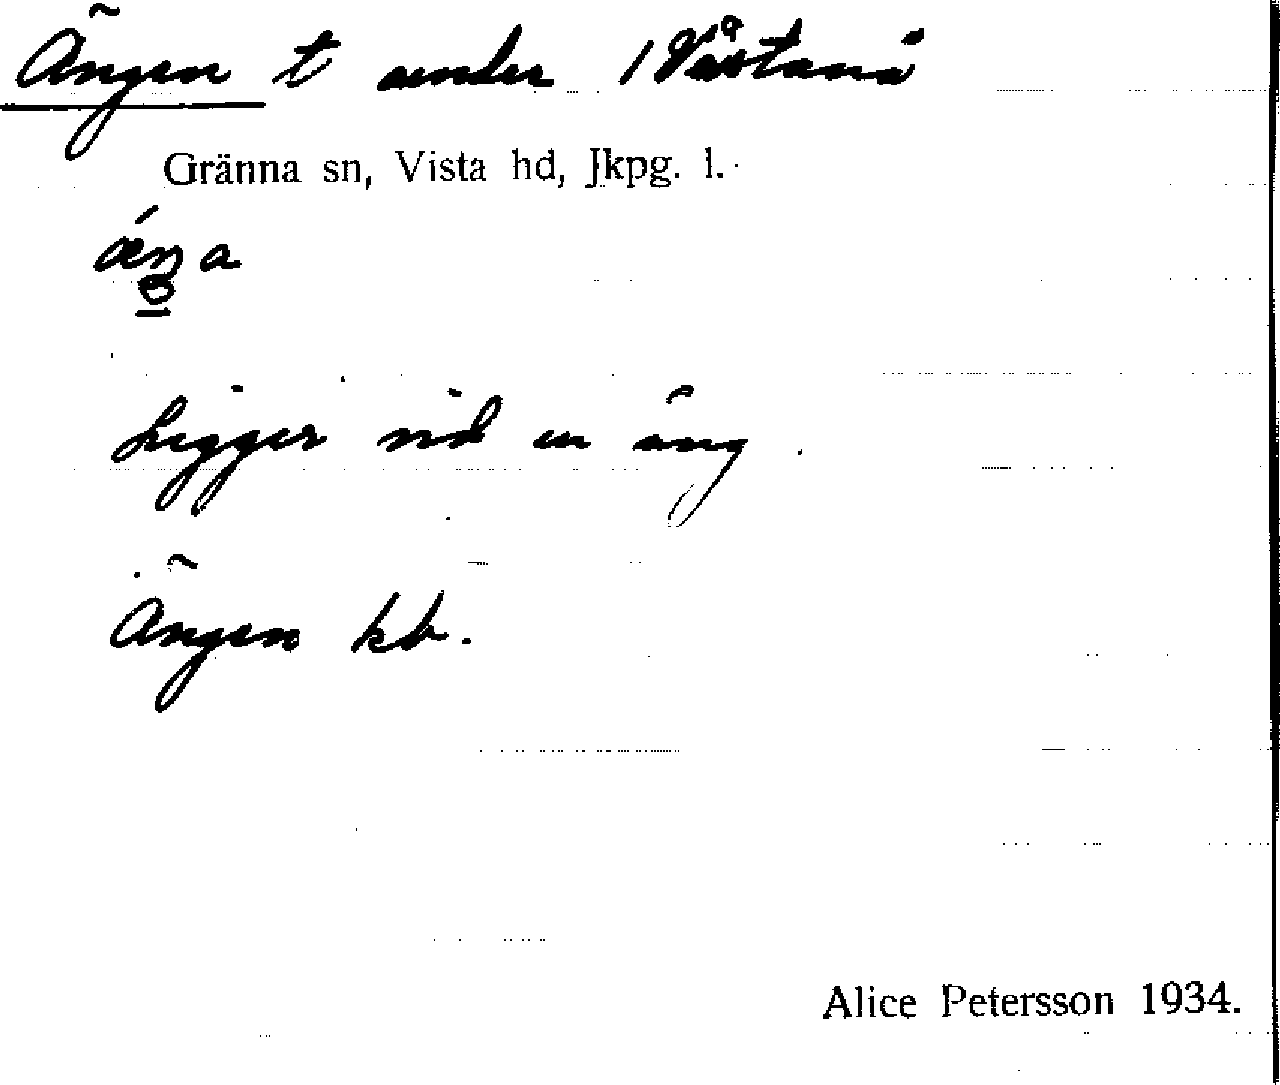 Ängen t under 1 Västanå
Gränna sn, Vista hd, Jkpg. l.
Ligger vid en äng.
Ängen kb.
Alice Petersson 1934.